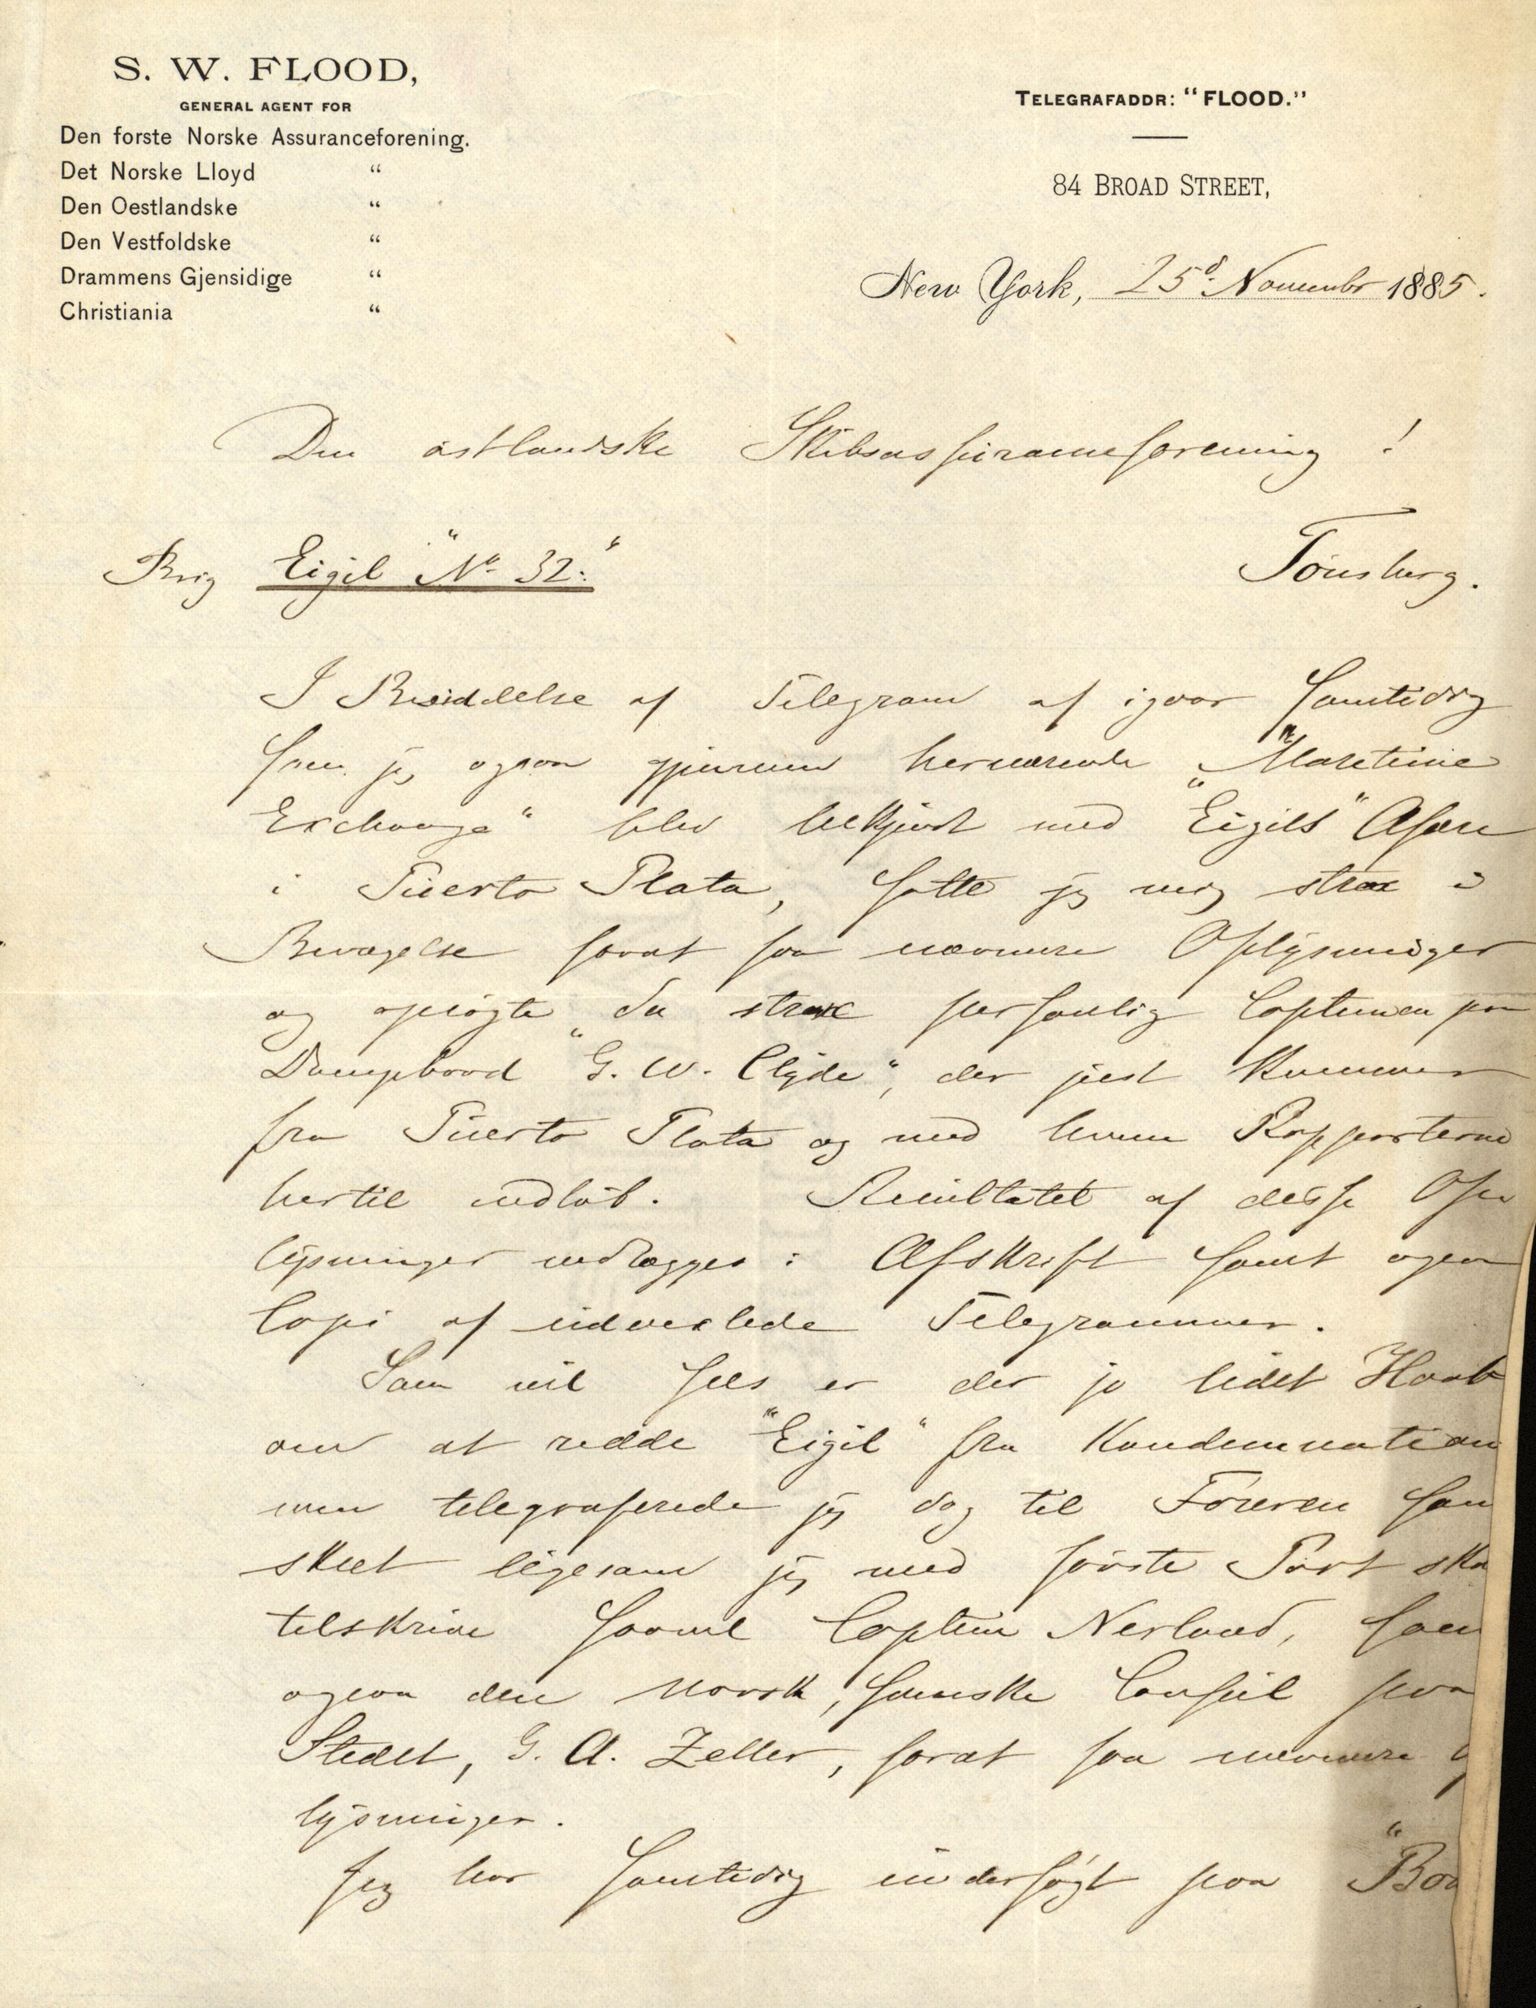 S. W. FLOOD,
GENERAL AGENT FOR
Den forste Norske Assuranceforening.
Det Norske Lloyd "
Den Oestlandske "
Den Vestfoldske "
Drammens Gjensidige "
Christiania "
TELEGRAFADDR: "FLOOD."
84 BROAD STREET,
New York, 25d November 1885.
Den østlandske Skibsassuranceforening!
Brig Eigil "No 32."
Tönsberg.
I Besiddelse af Telegram af igaar samtidig
som jeg ogsaa gjennem herværende "Maritime
Exchange" blev bekjendt med "Eigils" Afære
i Puerto Plata, satte jeg mig strax i
Bevægelse forat faa nærmere Oplysninger
og opsøgte da strax personlig Captainen paa
Dampbaad "G. W. Clyde", der just kommer
fra Puerto Plata og med hvem Rapporterne
hertil indløb. Resultatet af disse Op
lysninger indlægges i Afskrift samt ogsaa
Copi af udvexlede Telegrammer.
Som vil sees er der jo lidet Haab
om at redde "Eigil" fra Kondemnation
men telegraferede jeg dog til Føreren som
skeet ligesom jeg med første Post ska
tilskrive saavel Captein Nerlund, som
ogsaa den norsk, svenske Consul paa
Stedet, G. A. Zeller, forat faa nærmere
lysninger.
Jeg har samtidig undersøgt paa "Boa